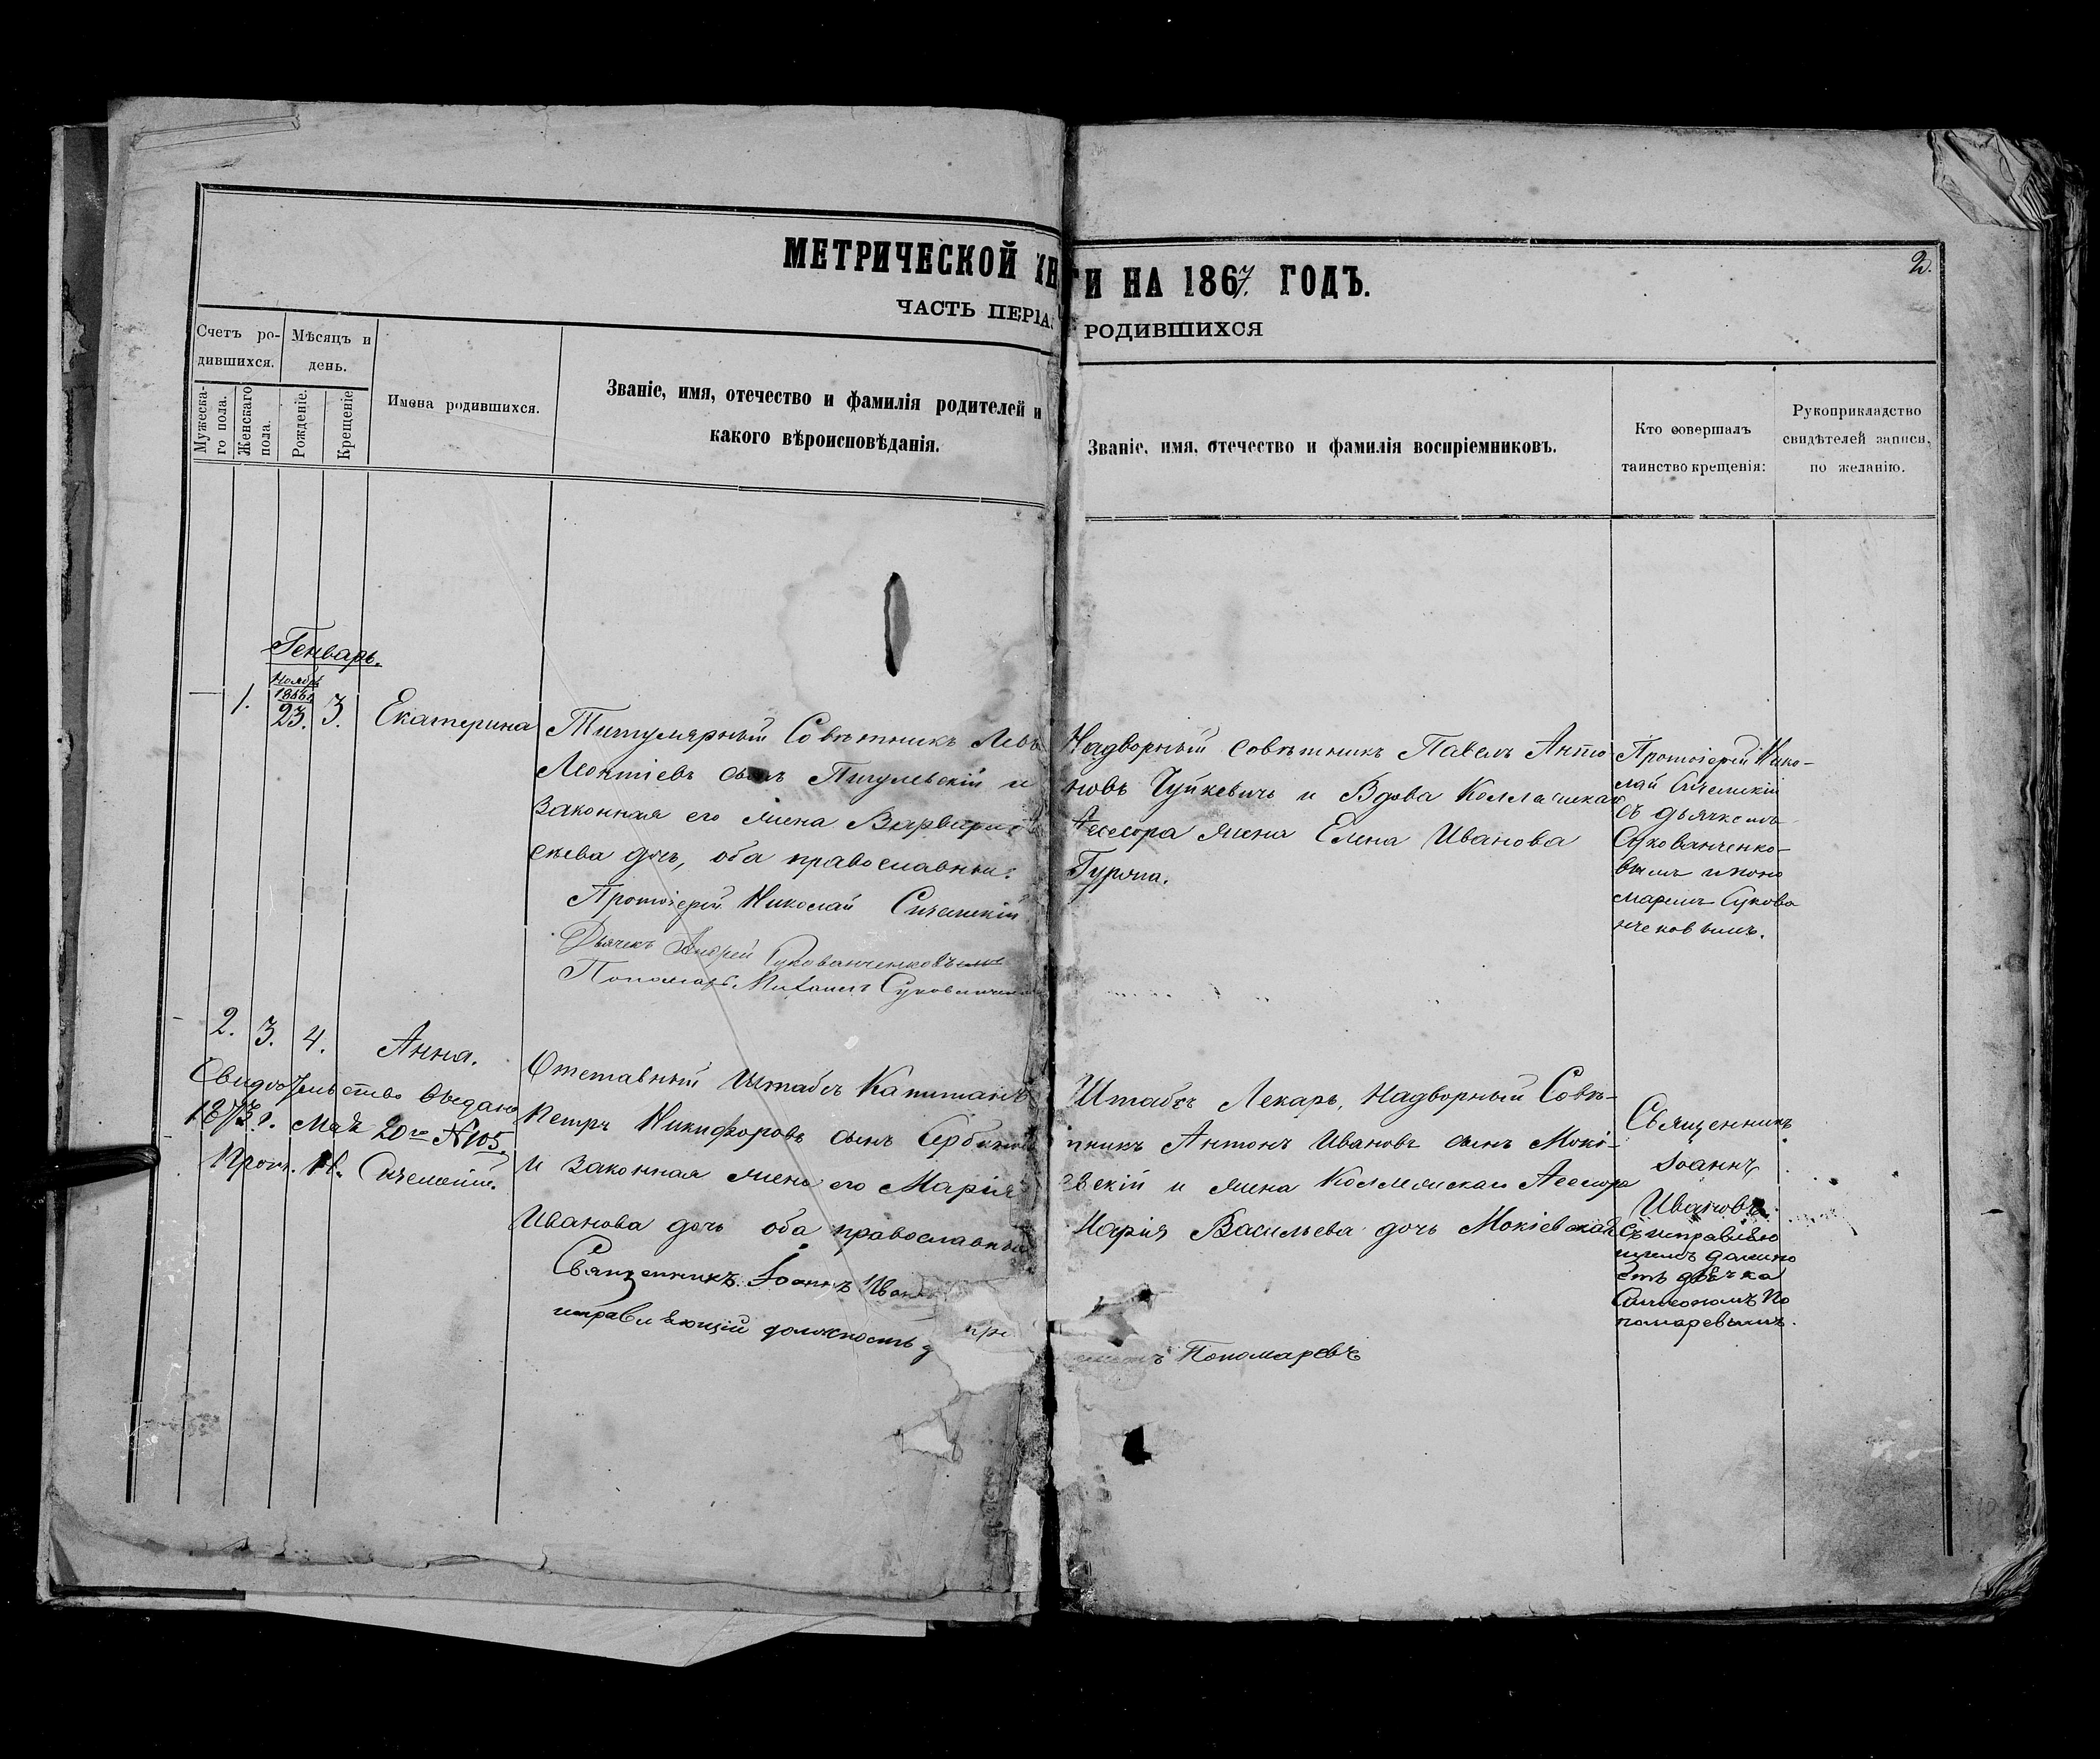 МЕТРИЧЕСКОЙ КНИГИ НА 1867. ГОДЪ.
2.
ЧАСТЬ ПЕРВАЯ РОДИВШИХСЯ
Счетъ ро-
дившихся.
Мѣсяцъ и
день.
Мужеска-
го пола.
Женскаго
пола.
Рожденіе.
Крещеніе
Имена родившихся.
Званіе, имя, отечество и фамилія родителей и
какого вѣроисповѣданія.
Званіе, имя, отечество и фамилія воспріемниковъ.
Кто совершалъ
таинство крещенія:
Рукоприкладство
свидѣтелей записи,
по желанію.
Генварь.
Ноябрь
1866
1. 23. 3. Екатерина
Титулярный Совѣтникъ Левъ
Леонтіевъ сынъ Пигулевскій и
законная его жена Варвара
дочь, оба православные.
Протоіерей Николай
Дьячекъ Андрей
Пономарь Михаилъ
Надворный Совѣтникъ Павелъ Анто
новъ Чуйкевичь и Вдова Коллежскаго
Ассесора жена Елена Иванова
Протоіерей Нико-
лай
съ дьячкомъ
Сукованченко-
вымъ и поно
маремъ Сукова
нченковымъ.
2. 3. 4. Анна.
Свидѣтельство выдано
1873 г. Мая 20го № 105.
Прот. Н.
Отставный Штабсъ Капитанъ
Петръ Никифоровъ сынъ
и законная жена его Марія
Иванова дочь оба православные
Священникъ Іоаннъ
исправляющій должность
Штабсъ Лекарь, Надворный Совѣ-
тникъ Антонъ Ивановъ сынъ Мокі-
евскій и жена Коллежскаго Ассесора
Марія Васильева дочь Мокіевская
Пономаревъ
Священникъ
Іоаннъ
Ивановъ
съ исправляю
щимъ должно
сть дьячка
Симеономъ По
номаревымъ.